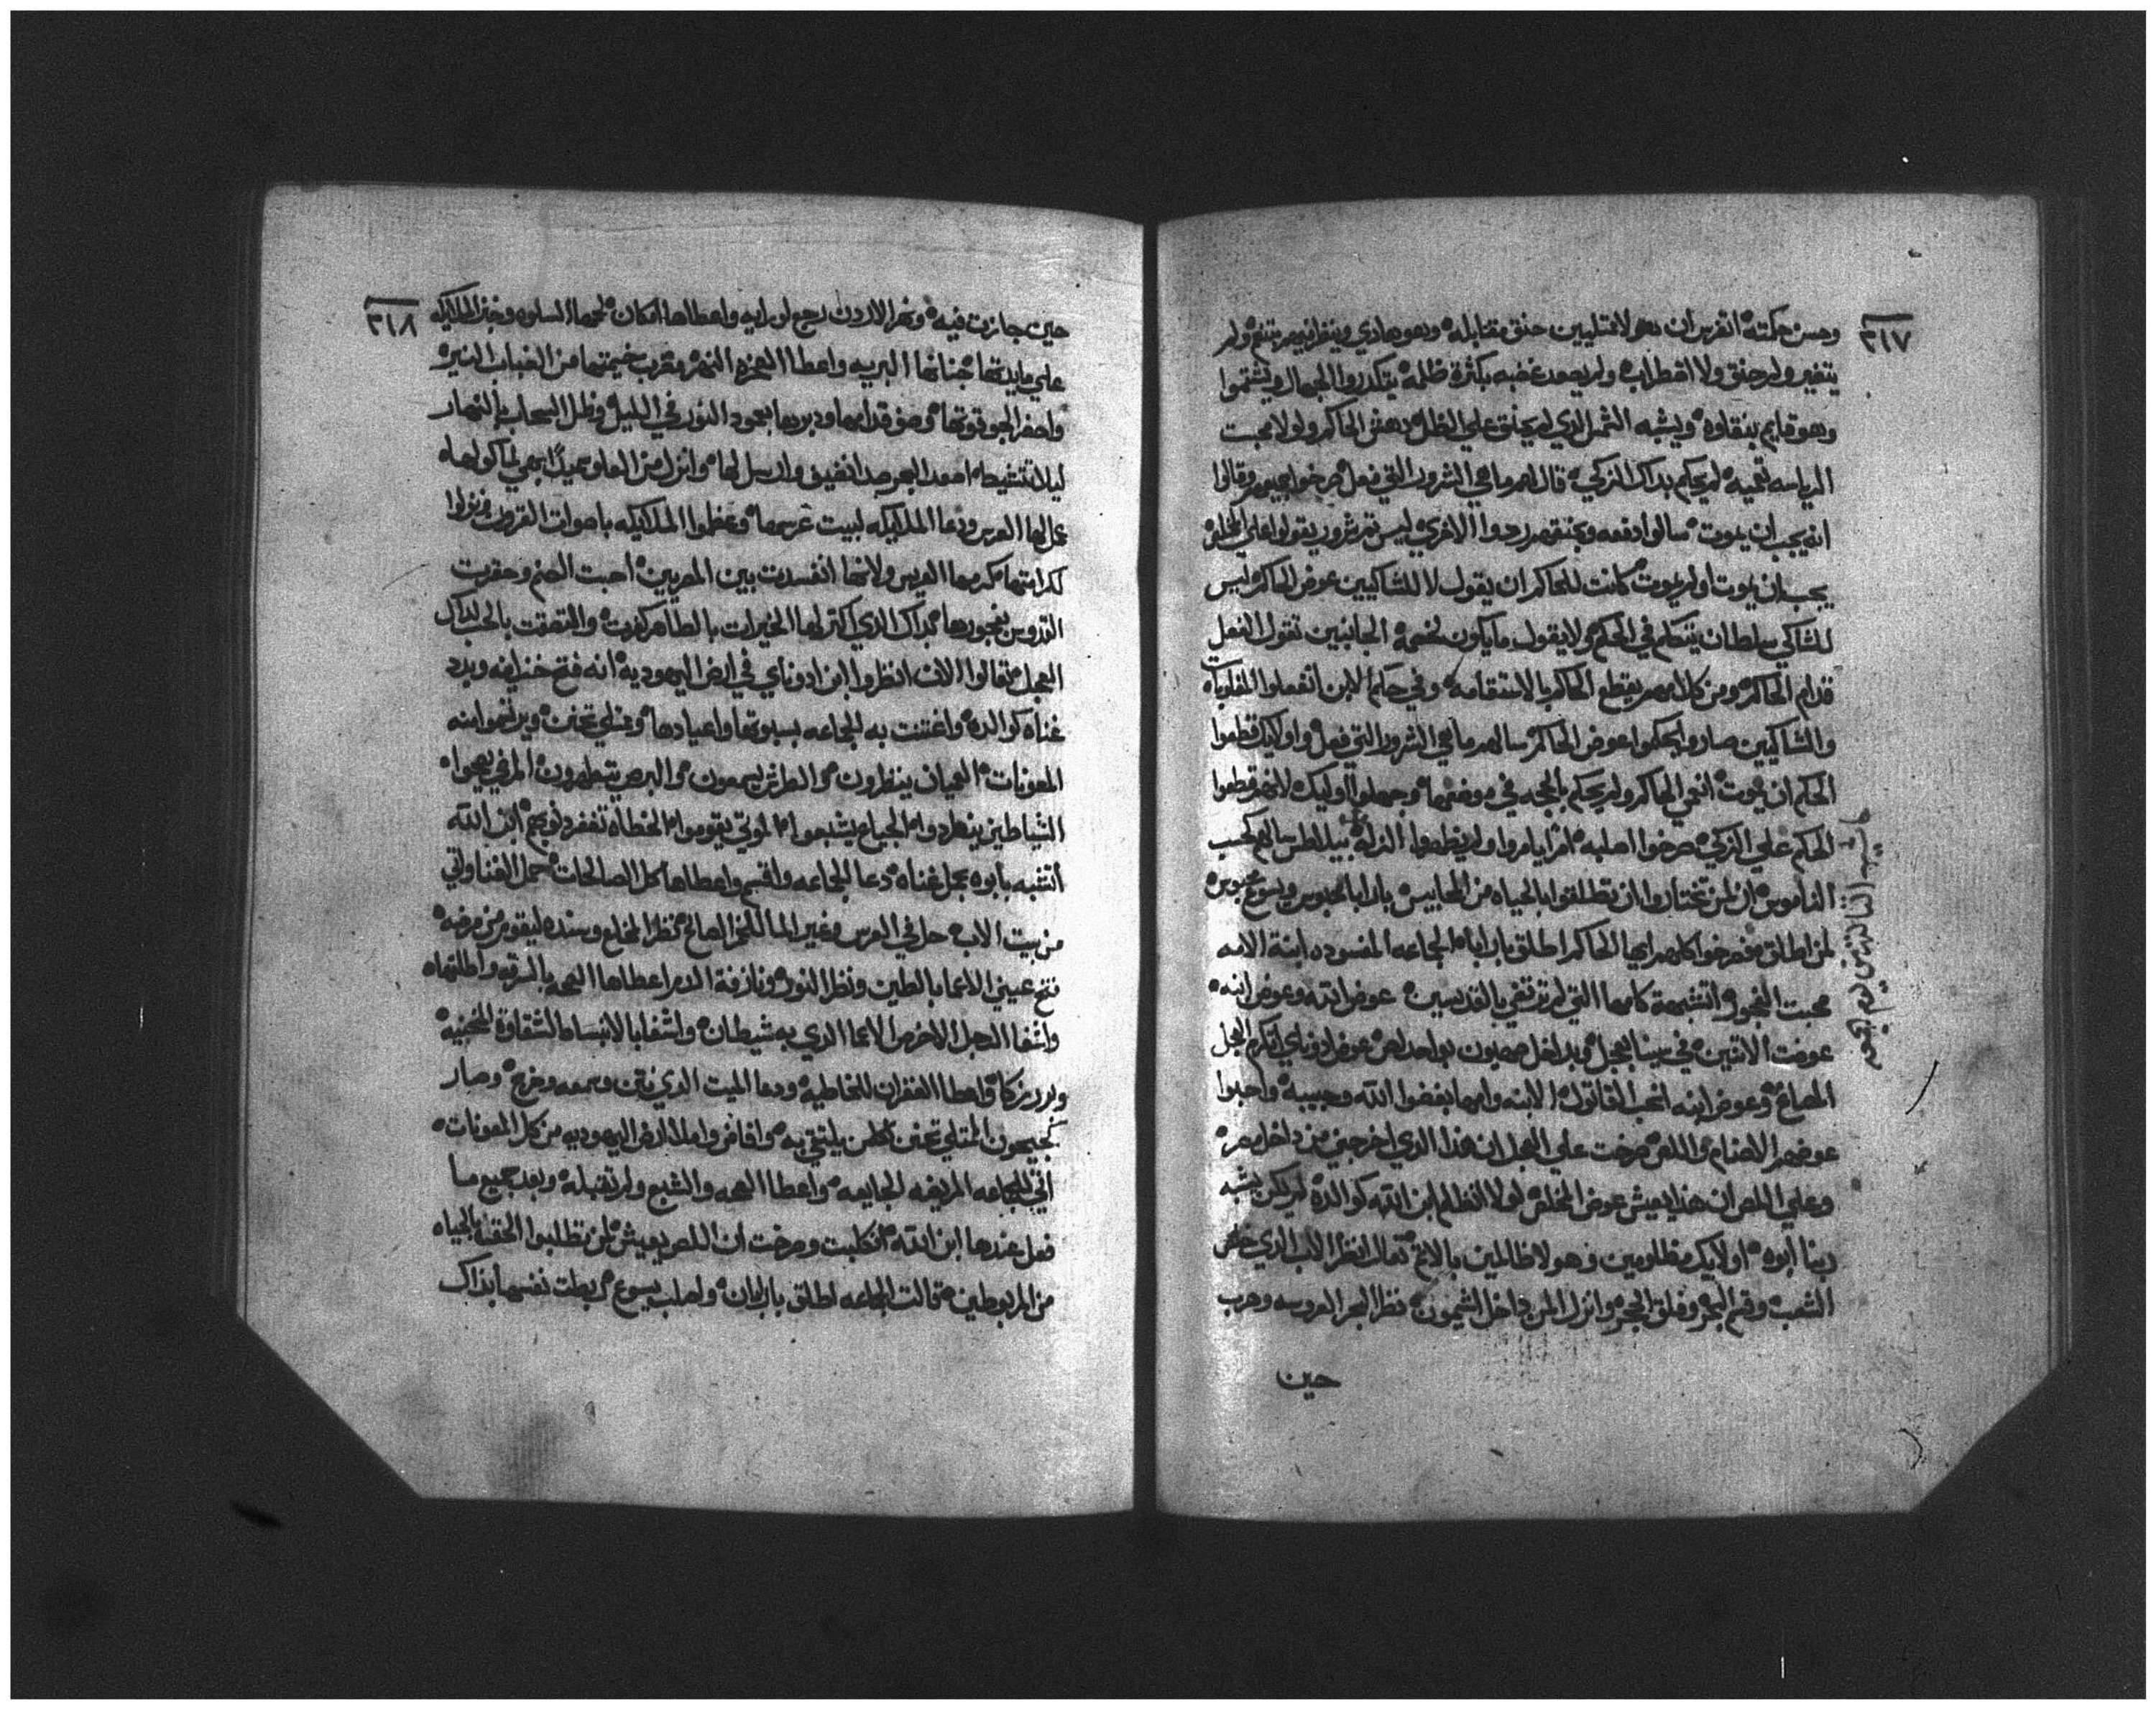 ٣١٧
وحسن حكمته انفرس ان هولا ممتليين حنق مقابله وهو هادي وينظر اليهم بتنعم ولم
يتغير ولم حنق ولا اقطراب ولم يصعد غضبه بكثرة ظلمه يتكدروا الجهال ويشتموا
وهو قايم بنقاوه ويشبه الشمل الذي لم يحنق علي الظل دهش الحاكم ولولا محبت
الرياسه تحميه لم يحكم بداك الزكي قال لهم ما هي الشرور التي فعل صرخوا جميعهم وقالوا
انه يجب ان يموت سالوا دفعه وبحنقهم ردوا الاخري ليس ثم شرور يقولوا علي المخلص
يجب ان يموت او لم يموت كانت للحاكم ان يقول لا للشاكيين عوض الحاكم ليس
للشاكي سلطان يتكلم في الحكم ولا يقول ما ياكون لخصمه الجانبين تقول الفعل
قدام الحاكم ومن كلامهم يقطع الحاكم بالاستقامه وفي حكم الابن اتفعلوا المقلوبات
والشاكيين صاروا يحكموا عوض الحاكم سالهم ما هي الشرور التي فعل واوليك قطعوا
الحكم ان يموت انعمي الحاكم ولم يحكم بالحجه في موضعها وجهلوا اوليك لانهم قطعوا
الحكم علي الزكي صرخوا اصلبه امر ايامروا ولم يظهروا الزله بيلاطس سالهم كحسب
الناموس ان لمن تختاروا ان تطلقوا بالحياه من المحابيس بارابا لحبوس ويسوع محبوس
لمن اطلق فصرخوا كلهم ايها الحاكم اطلق بارابا الجماعه المفسوده ابنة الامه
محبت الفجور اتشبهة كامها التي لم ترتقي بالقديسين عوض الله وعوض ابنه
عوضت الاتنين في سينا بعجل وبداخل صهيون بواحد لص عوض ادوناي اتكرم العجل
المصاغ وعوض ابنه انحب القاتول الابنه وامها بغضوا الله وحبيبه واحبوا
عوضهم الاصنام واللص صرخت علي العجل ان هذا الدي اخرجني من داخل مصر
وعلي اللص ان هذا يعيش عوض المخلص لولا انظلم ابن الله كوالده لم يكن يشبه
ربنا ابوه اولايك مظلومين وهولا ظالمين بالاثم تعال انظر الاب الدي خلص
الشعب وقسم البحر وفلق الحجر وانزل المن داخل الشيمون نظر البحر العروسه وهرب
حين
حاشيه الثالثين يوم الجمعه
٣١٨
حين جازت فيه ونهر الاردن رجع لورايه واعطاها امكان لحمها السلوه وخبز الملايكه
علي مايدتها جناتها البريه واعطا الصخره النهر وضرب خيمتها من الضباب المنيره
واحضر الجو قوتها وضو قدامها ودبرها بعمود النور في الليل وظل السحاب بالنهار
ليلا تنشيط اصعد البحر صدا نضيف وارسل لها وانزل من العلو سميدا بهي لماكولها
عمل لها العرس ودعا الملايكه لبيت عرسها وعظموا الملايكه باصوات القرون ونزلوا
لكرامتها كرمها العريس ولانها انفسدت بين المصريين احبت الصنم وحقرت
القدوس بفجورها بداك الدي اكتر لها الخيرات بالطاهر كفرت والتصقت بالحب لداك
العجل تقالوا الان انظروا ابن ادوناي في ارض اليهودية انه فتح خزاينه وبدد
غناه كوالده واغتنت به الجماعه بسبوتها واعيادها وممتلي تحنن ويرتحموا منه
المعونات العميان ينظرون والطرش يسمعون والبرص يتطهرون المرضي يصحوا
الشياطين ينطردوا الجياع يشبعوا الموتي يقوموا الخطاه تغفر دنوبهم ابن الله
اتشبه بابوه بحمل غناه دعا الجماعه واقسم واعطاها كل الصالحات حمل الغنا واتي
من بيت الاب حل في العرس وغير الما للخمر الصالح نظر المخلع وسنده ليقوم من مرضه
فتح عيني الاعما بالطين ونظر النور ونازفة الدم اعطاها الصحه بالسرقه واطلقها
واشفا الرجل الاخرس الاعما الدي به شيطان واشفا بالانبساط الشقاوة المنحنيه
وبرر زكا واعطا الغفران للخاطيه ودعا الميت الدي نتن وسمعه وخرج وصار
كجيحون الممتلي تحنن لكل من يلتجي به وافاض واملا ارض اليهوديه من كل المعونات
اتي للجماعه المريضه الجايعه واعطا الصحه والشبع ولم تقبله وبعد جميع ما
فعل عندها ابن الله انكلبت وصرخت ان اللص يعيش لمن تطلبوا الحقنه بالحياه
من المربوطين قالت الجماعه اطلق بارابان واصلب يسوع ربطت نفسها بداك